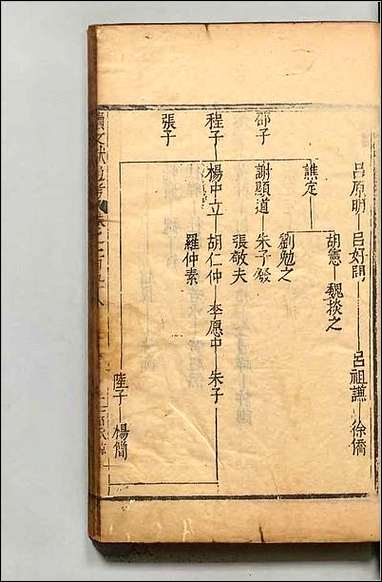 呂原明 呂好問 呂祖謙 徐僑
胡憲 魏掞之
譙定 劉勉之
邵子 謝顯道 朱子發
張敬夫
程子 楊中立 胡仁仲 李愿中 朱子
羅仲素
張子
陸子 楊簡